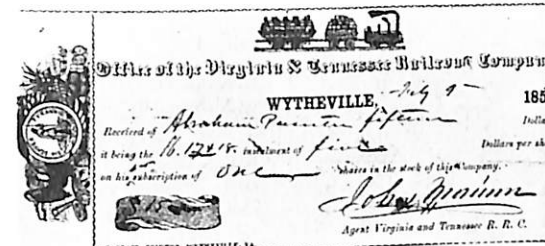 Office of the Virginia & Tennessee Railroad Compan
WYTHEVILLE, July 185
Received of Abraham Painter fifteen Dolla
it being the instalment of five Dollars per sh
on his subscription of one shares in the stock of this Company.
John
Agent Virginia and Tennessee R. R. C.